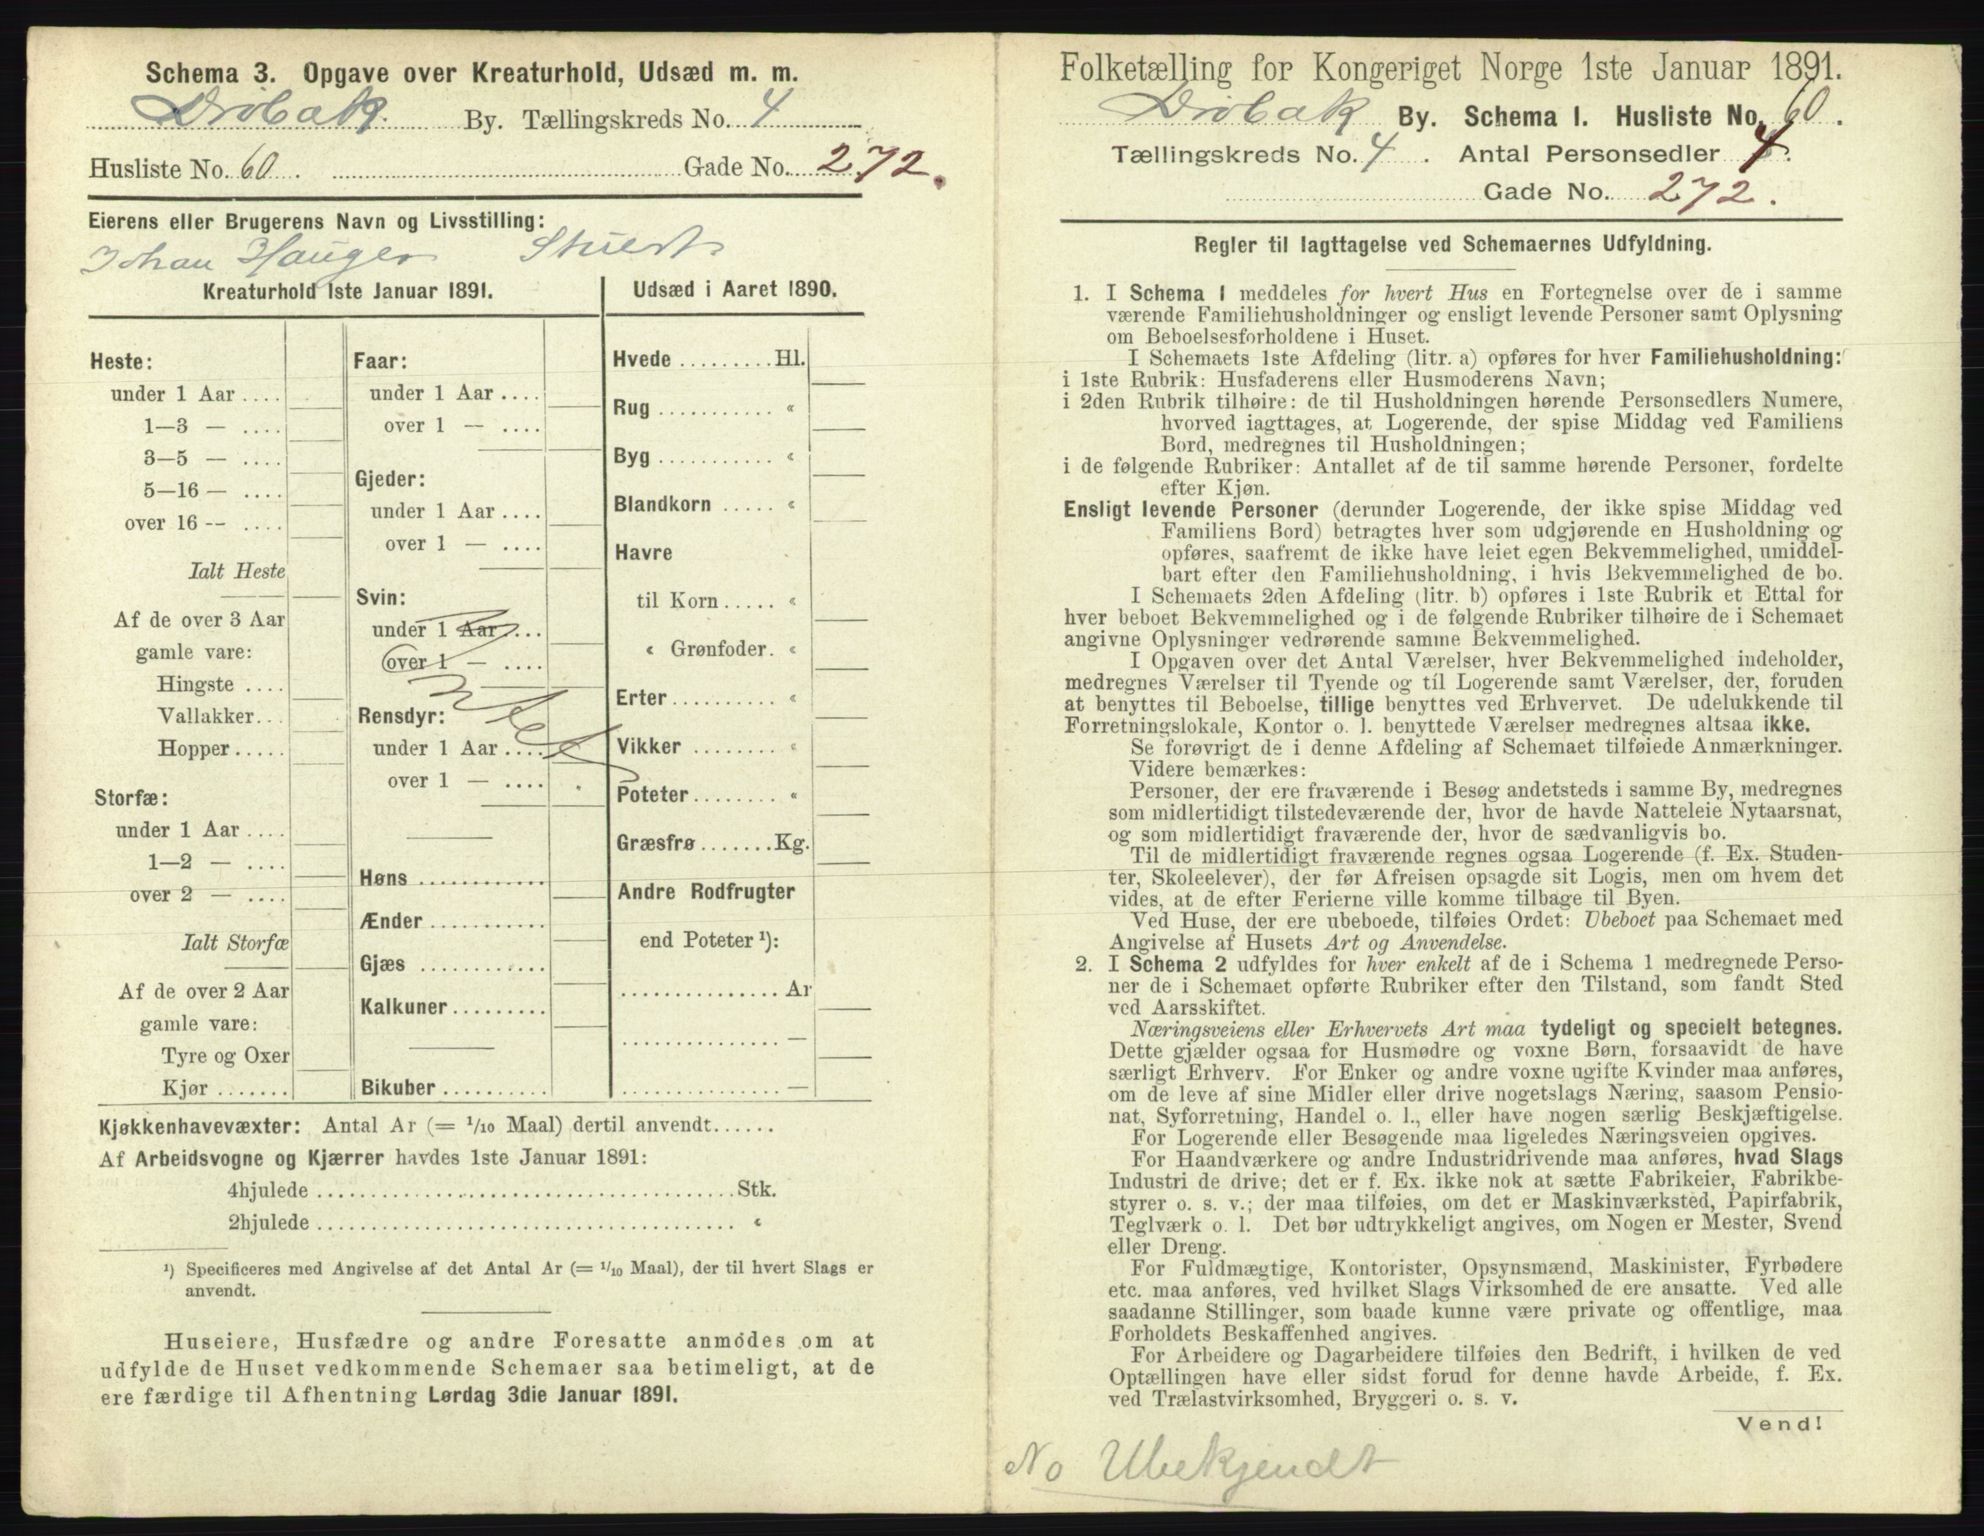 Schema 3. Opgave over Kreaturhold, Udsæd m. m.
Drøbak. By. Tællingskreds No. 4
Husliste No. 60. Gade No. 272.
Eierens eller Brugerens Navn og Livsstilling:
Johan Hauger Stuert
Kreaturhold 1ste Januar 1891.
Heste:
under 1 Aar ....
1—3 — ....
3—5 — ....
5—16 — ....
over 16 -- ....
Ialt Heste
Af de over 3 Aar
gamle vare:
Hingste ....
Vallakker...
Hopper.....
Storfæ:
under 1 Aar ....
1—2 — ....
over 2 — ....
Ialt Storfæ
Af de over 2 Aar
gamle vare:
Tyre og Oxer
Kjør .......
Faar:
under 1 Aar ....
over 1 — ....
Gjeder:
under 1 Aar ....
over 1 — ....
Svin:
under 1 Aar ....
over 1 — ....
Rensdyr:
under 1 Aar ....
over 1 — ....
Høns ............
Ænder ...........
Gjæs ............
Kalkuner.........
Bikuber..........
Udsæd i Aaret 1890.
Hvede .........Hl.
Rug ........... «
Byg ........... «
Blandkorn ..... «
Havre
til Korn ..... «
« Grønfoder. «
Erter.......... «
Vikker ........ «
Poteter........ «
Græsfrø.......Kg.
Andre Rodfrugter
end Poteter ¹):
...............Ar
............... —
............... —
Kjøkkenhavevæxter: Antal Ar (= 1/10 Maal) dertil anvendt......
Af Arbeidsvogne og Kjærrer havdes 1ste Januar 1891:
4hjulede ........................................Stk.
2hjulede ........................................ «
¹) Specificeres med Angivelse af det Antal Ar (= 1/10 Maal), der til hvert Slags er
anvendt.
Huseiere, Husfædre og andre Foresatte anmodes om at
udfylde de Huset vedkommende Schemaer saa betimeligt, at de
ere færdige til Afhentning Lørdag 3die Januar 1891.
Folketælling for Kongeriget Norge 1ste Januar 1891.
Drøbak By. Schema 1. Husliste No. 60.
Tællingskreds No. 4. Antal Personsedler 4.
Gade No. 272.
Regler til Iagttagelse ved Schemaernes Udfyldning.
1. I Schema 1 meddeles for hvert Hus en Fortegnelse over de i samme
værende Familiehusholdninger og ensligt levende Personer samt Oplysning
om Beboelsesforholdene i Huset.
I Schemaets 1ste Afdeling (litr. a) opføres for hver Familiehusholdning:
i 1ste Rubrik: Husfaderens eller Husmoderens Navn;
i 2den Rubrik tilhøire: de til Husholdningen hørende Personsedlers Numere,
hvorved iagttages, at Logerende, der spise Middag ved Familiens
Bord, medregnes til Husholdningen;
i de følgende Rubriker: Antallet af de til samme hørende Personer, fordelte
efter Kjøn.
Ensligt levende Personer (derunder Logerende, der ikke spise Middag ved
Familiens Bord) betragtes hver som udgjørende en Husholdning og
opføres, saafremt de ikke have leiet egen Bekvemmelighed, umiddel-
bart efter den Familiehusholdning, i hvis Bekvemmelighed de bo.
I Schemaets 2den Afdeling (litr. b) opføres i 1ste Rubrik et Ettal for
hver beboet Bekvemmelighed og i de følgende Rubriker tilhøire de i Schemaet
angivne Oplysninger vedrørende samme Bekvemmelighed.
I Opgaven over det Antal Værelser, hver Bekvemmelighed indeholder,
medregnes Værelser til Tyende og til Logerende samt Værelser, der, foruden
at benyttes til Beboelse, tillige benyttes ved Erhvervet. De udelukkende til
Forretningslokale, Kontor o. l. benyttede Værelser medregnes altsaa ikke.
Se forøvrigt de i denne Afdeling af Schemaet tilføiede Anmærkninger.
Videre bemærkes:
Personer, der ere fraværende i Besøg andetsteds i samme By, medregnes
som midlertidigt tilstedeværende der, hvor de havde Natteleie Nytaarsnat,
og som midlertidigt fraværende der, hvor de sædvanligvis bo.
Til de midlertidigt fraværende regnes ogsaa Logerende (f. Ex. Studen-
ter, Skoleelever), der før Afreisen opsagde sit Logis, men om hvem det
vides, at de efter Ferierne ville komme tilbage til Byen.
Ved Huse, der ere ubeboede, tilføies Ordet: Ubeboet paa Schemaet med
Angivelse af Husets Art og Anvendelse.
2. I Schema 2 udfyldes for hver enkelt af de i Schema 1 medregnede Perso-
ner de i Schemaet opførte Rubriker efter den Tilstand, som fandt Sted
ved Aarsskiftet.
Næringsveiens eller Erhvervets Art maa tydeligt og specielt betegnes.
Dette gjælder ogsaa for Husmødre og voxne Børn, forsaavidt de have
særligt Erhverv. For Enker og andre voxne ugifte Kvinder maa anføres,
om de leve af sine Midler eller drive nogetslags Næring, saasom Pensio-
nat, Syforretning, Handel o. l., eller have nogen særlig Beskjæftigelse.
For Logerende eller Besøgende maa ligeledes Næringsveien opgives.
For Haandværkere og andre Industridrivende maa anføres, hvad Slags
Industri de drive; det er f. Ex. ikke nok at sætte Fabrikeier, Fabrikbe-
styrer o. s. v.; der maa tilføies, om det er Maskinværksted, Papirfabrik,
Teglværk o. l. Det bør udtrykkeligt angives, om Nogen er Mester, Svend
eller Dreng.
For Fuldmægtige, Kontorister, Opsynsmænd, Maskinister, Fyrbødere
etc. maa anføres, ved hvilket Slags Virksomhed de ere ansatte. Ved alle
saadanne Stillinger, som baade kunne være private og offentlige, maa
Forholdets Beskaffenhed angives.
For Arbeidere og Dagarbeidere tilføies den Bedrift, i hvilken de ved
Optællingen have eller sidst forud for denne havde Arbeide, f. Ex.
ved Trælastvirksomhed, Bryggeri o. s. v.
Vend!
No Ubekjendt